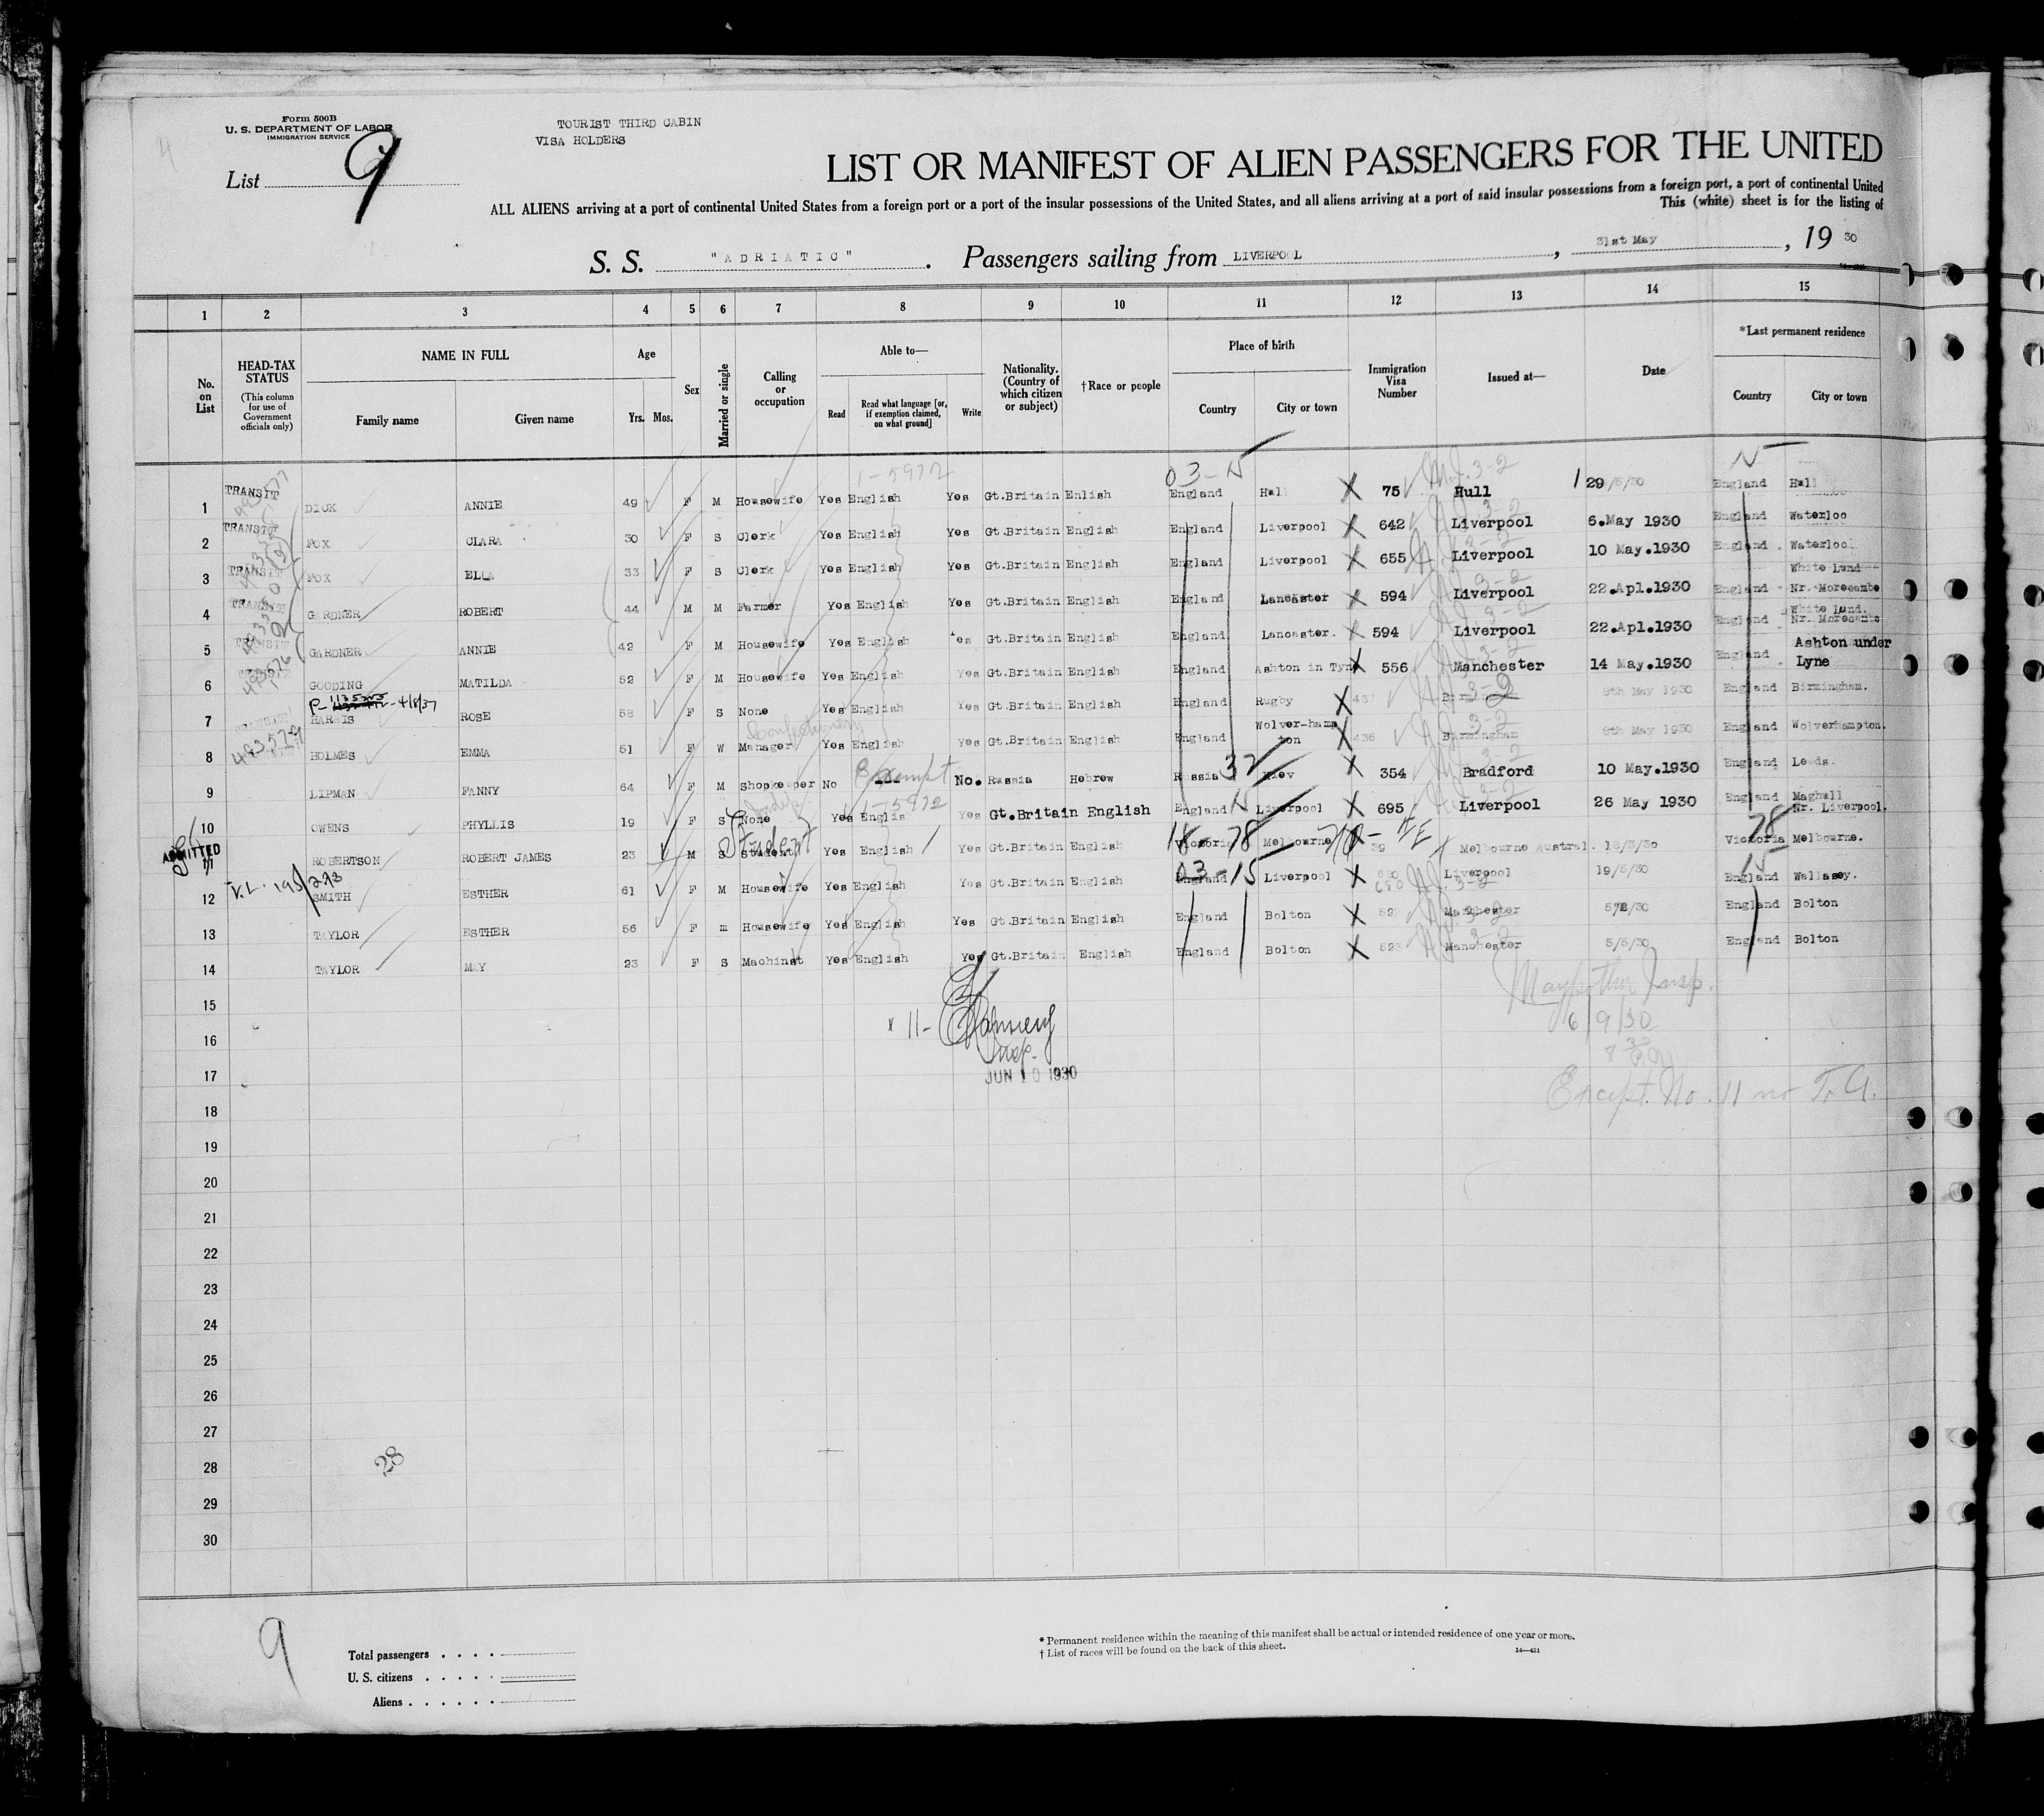 Form 500B
U. S. DEPARTMENT OF LABOR
IMMIGRATION SERVICE
TOURIST THIRD CABIN
VISA HOLDERS
List 9
LIST OR MANIFEST OF ALIEN PASSENGERS FOR THE UNITED
ALL ALIENS arriving at a port of continental United States from a foreign port or a port of the insular possessions of the United States, and all aliens arriving at a port of said insular possessions from a foreign port, a port of continental United
This (white) sheet is for the listing of
S. S. "ADRIATIC". Passengers sailing from LIVERPOOL, 31st May, 19 30
1 2 3 4 5 6 7 8 9 10 11 12 13 14 15
No. on List
HEAD-TAX STATUS (This column for use of Government officials only)
NAME IN FULL
Family name Given name
Age
Yrs. Mos.
Sex
Married or single
Calling or occupation
Able to—
Read Read what language [or, if exemption claimed, on what ground] Write
Nationality. (Country of which citizen or subject)
†Race or people
Place of birth
Country City or town
Immigration Visa Number
Issued at—
Date
*Last permanent residence
Country City or town
1-5972
03-15
1 TRANSIT DICK ANNIE 49 F M Housewife Yes English Yes Gt.Britain Enlish England Hull X 75 Hull 29/5/30 England Hull
2 TRANSIT FOX CLARA 30 F S Clerk Yes English Yes Gt.Britain English England Liverpool X 642 Liverpool 6.May 1930 England Waterloo
3 TRANSIT FOX ELLA 33 F S Clerk Yes English Yes Gt.Britain English England Liverpool X 655 Liverpool 10 May.1930 England Waterloo
4 TRANSIT GARDNER ROBERT 44 M M Farmer Yes English Yes Gt.Britain English England Lancaster X 594 Liverpool 22.Apl.1930 England White Lund Nr. Morecambe
5 TRANSIT GARDNER ANNIE 42 F M Housewife Yes English Yes Gt.Britain English England Lancaster. X 594 Liverpool 22.Apl.1930 England White Lund. Nr. Morecambe
6 TRANSIT GOODING MATILDA 52 F M Housewife Yes English Yes Gt.Britain English England Ashton in Tyn X 556 Manchester 14 May.1930 England Ashton under Lyne
7 HARRIS ROSE 58 F S None Yes English Yes Gt.Britain English England Rugby X 437 Birmingham 8th May 1930 England Birmingham.
8 HOLMES EMMA 51 F W Confectionery Manager Yes English Yes Gt.Britain English England Wolver-hampton X 436 Birmingham 8th May 1930 England Wolverhampton.
9 LIPMAN FANNY 64 F M Shopkeeper No Exempt No. Russia Hebrew Russia 32 Kiev X 354 Bradford 10 May.1930 England Leeds.
10 OWENS PHYLLIS 19 F S None Yes English 1-5972 Yes Gt.Britain English England Liverpool X 695 Liverpool 26 May 1930 England Maghull Nr. Liverpool.
ADMITTED
11 ROBERTSON ROBERT JAMES 23 M S Student Student Yes English Yes Gt.Britain English Victoria Melbourne 39 Melbourne Austral. 18/3/30 Victoria 78 Melbourne.
12 SMITH ESTHER 61 F M Housewife Yes English Yes Gt.Britain English England 03-15 Liverpool X 680 Liverpool 19/5/30 England Wallasey.
13 TAYLOR ESTHER 56 F m Housewife Yes English Yes Gt.Britain English England Bolton X Manchester England Bolton
14 TAYLOR MAY 23 F S Machinst Yes English Yes Gt.Britain English England Bolton X 523 Manchester 5/5/30 England Bolton
15
16
17
18
19
20
21
22
23
24
25
26
27
28
29
30
x 11-
Insp.
JUN 10 1930
Insp.
6/9/30
Except No. 11 no T.A.
28
9
Total passengers
U. S. citizens
Aliens
* Permanent residence within the meaning of this manifest shall be actual or intended residence of one year or more.
† List of races will be found on the back of this sheet.
14—431